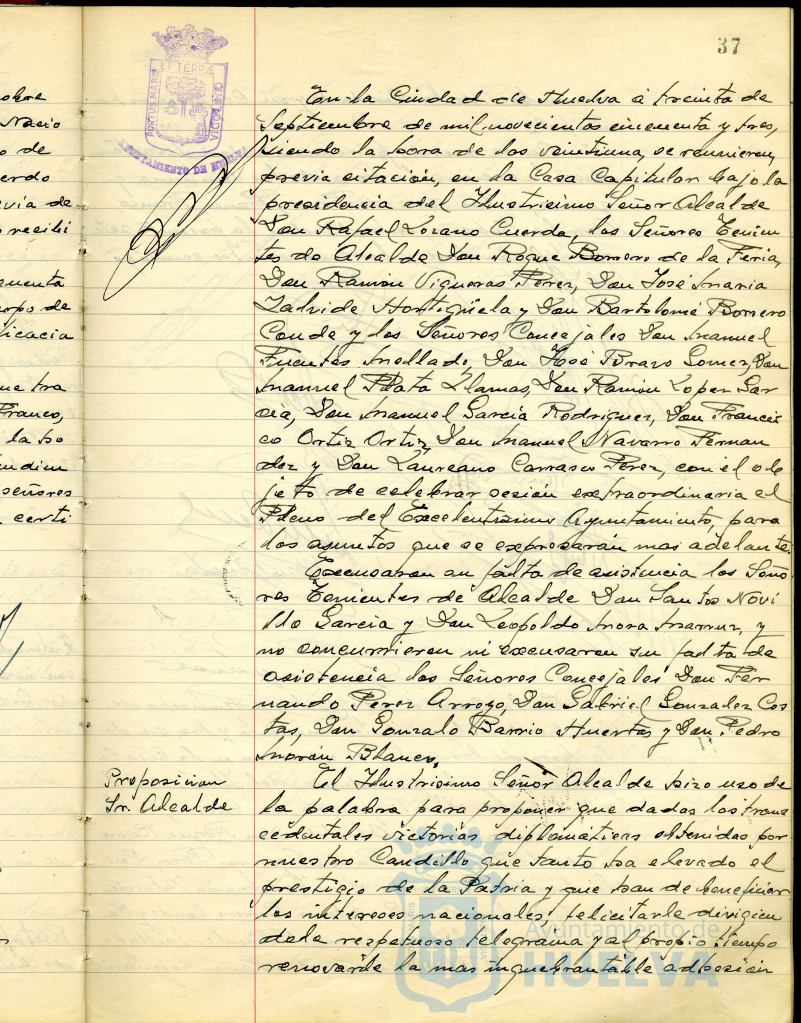 37
PORTUS MARIS
ET TERRAE
CUSTODIA
AYUNTAMIENTO DE HUELVA
En la Ciudad de Huelva á treinta de
Septiembre de mil novecientos cincuenta y tres,
siendo la hora de las veintiuna, se reunieron,
previa citación, en la Casa Capitular bajo la
presidencia del Ilustrisimo Señor Alcalde
Don Rafael Lozano Cuerda, los Señores Tenien
tes de Alcalde Don Roque Borrero de la Feria,
Don Ramón Vigueras Perez, Don José Maria
Zalvide Hortigüela y Don Bartolomé Borrero
Conde y los Señores Concejales Don Manuel
Fuentes Mellado, Don José Bravo Gomez, Don
Manuel Plata Llamas, Don Ramón Lopez Gar
cia, Don Manuel Garcia Rodriguez, Don Francis
co Ortiz Ortiz, Don Manuel Navarro Fernan
dez y Don Laureano Carrasco Perez, con el ob
jeto de celebrar sesión extraordinaria el
Pleno del Excelentisimo Ayuntamiento, para
los asuntos que se expresarán mas adelante.
Excusaron su falta de asistencia los Seño
res Tenientes de Alcalde Don Santos Novi
llo Garcia y Don Leopoldo Mora y
no concurrieron ni excusaron su falta de
asistencia los Señores Concejales Don Fer
nando Perez Arroyo, Don Gabriel Gonzalez Cos
tas, Don Gonzalo Barrio Huertas y Don Pedro
Morán Blanco.
Proposicion
Sr. Alcalde
El Ilustrisimo Señor Alcalde hizo uso de
la palabra para proponer que dadas las trans
cedentales victorias diplomáticas obtenidas por
nuestro Caudillo que tanto ha elevado el
prestigio de la Patria y que han de beneficiar
los intereses nacionales, felicitarle dirigien
dole respetuoso telegrama y al propio tiempo
renovarle la mas inquebrantable adhesión
obre
Nacio
o de
erdo
via de
recibi
cuenta
erpo de
licacia
ue tra
Franco,
la ho
ndien
señores
certi
Ayuntamiento de
HUELVA